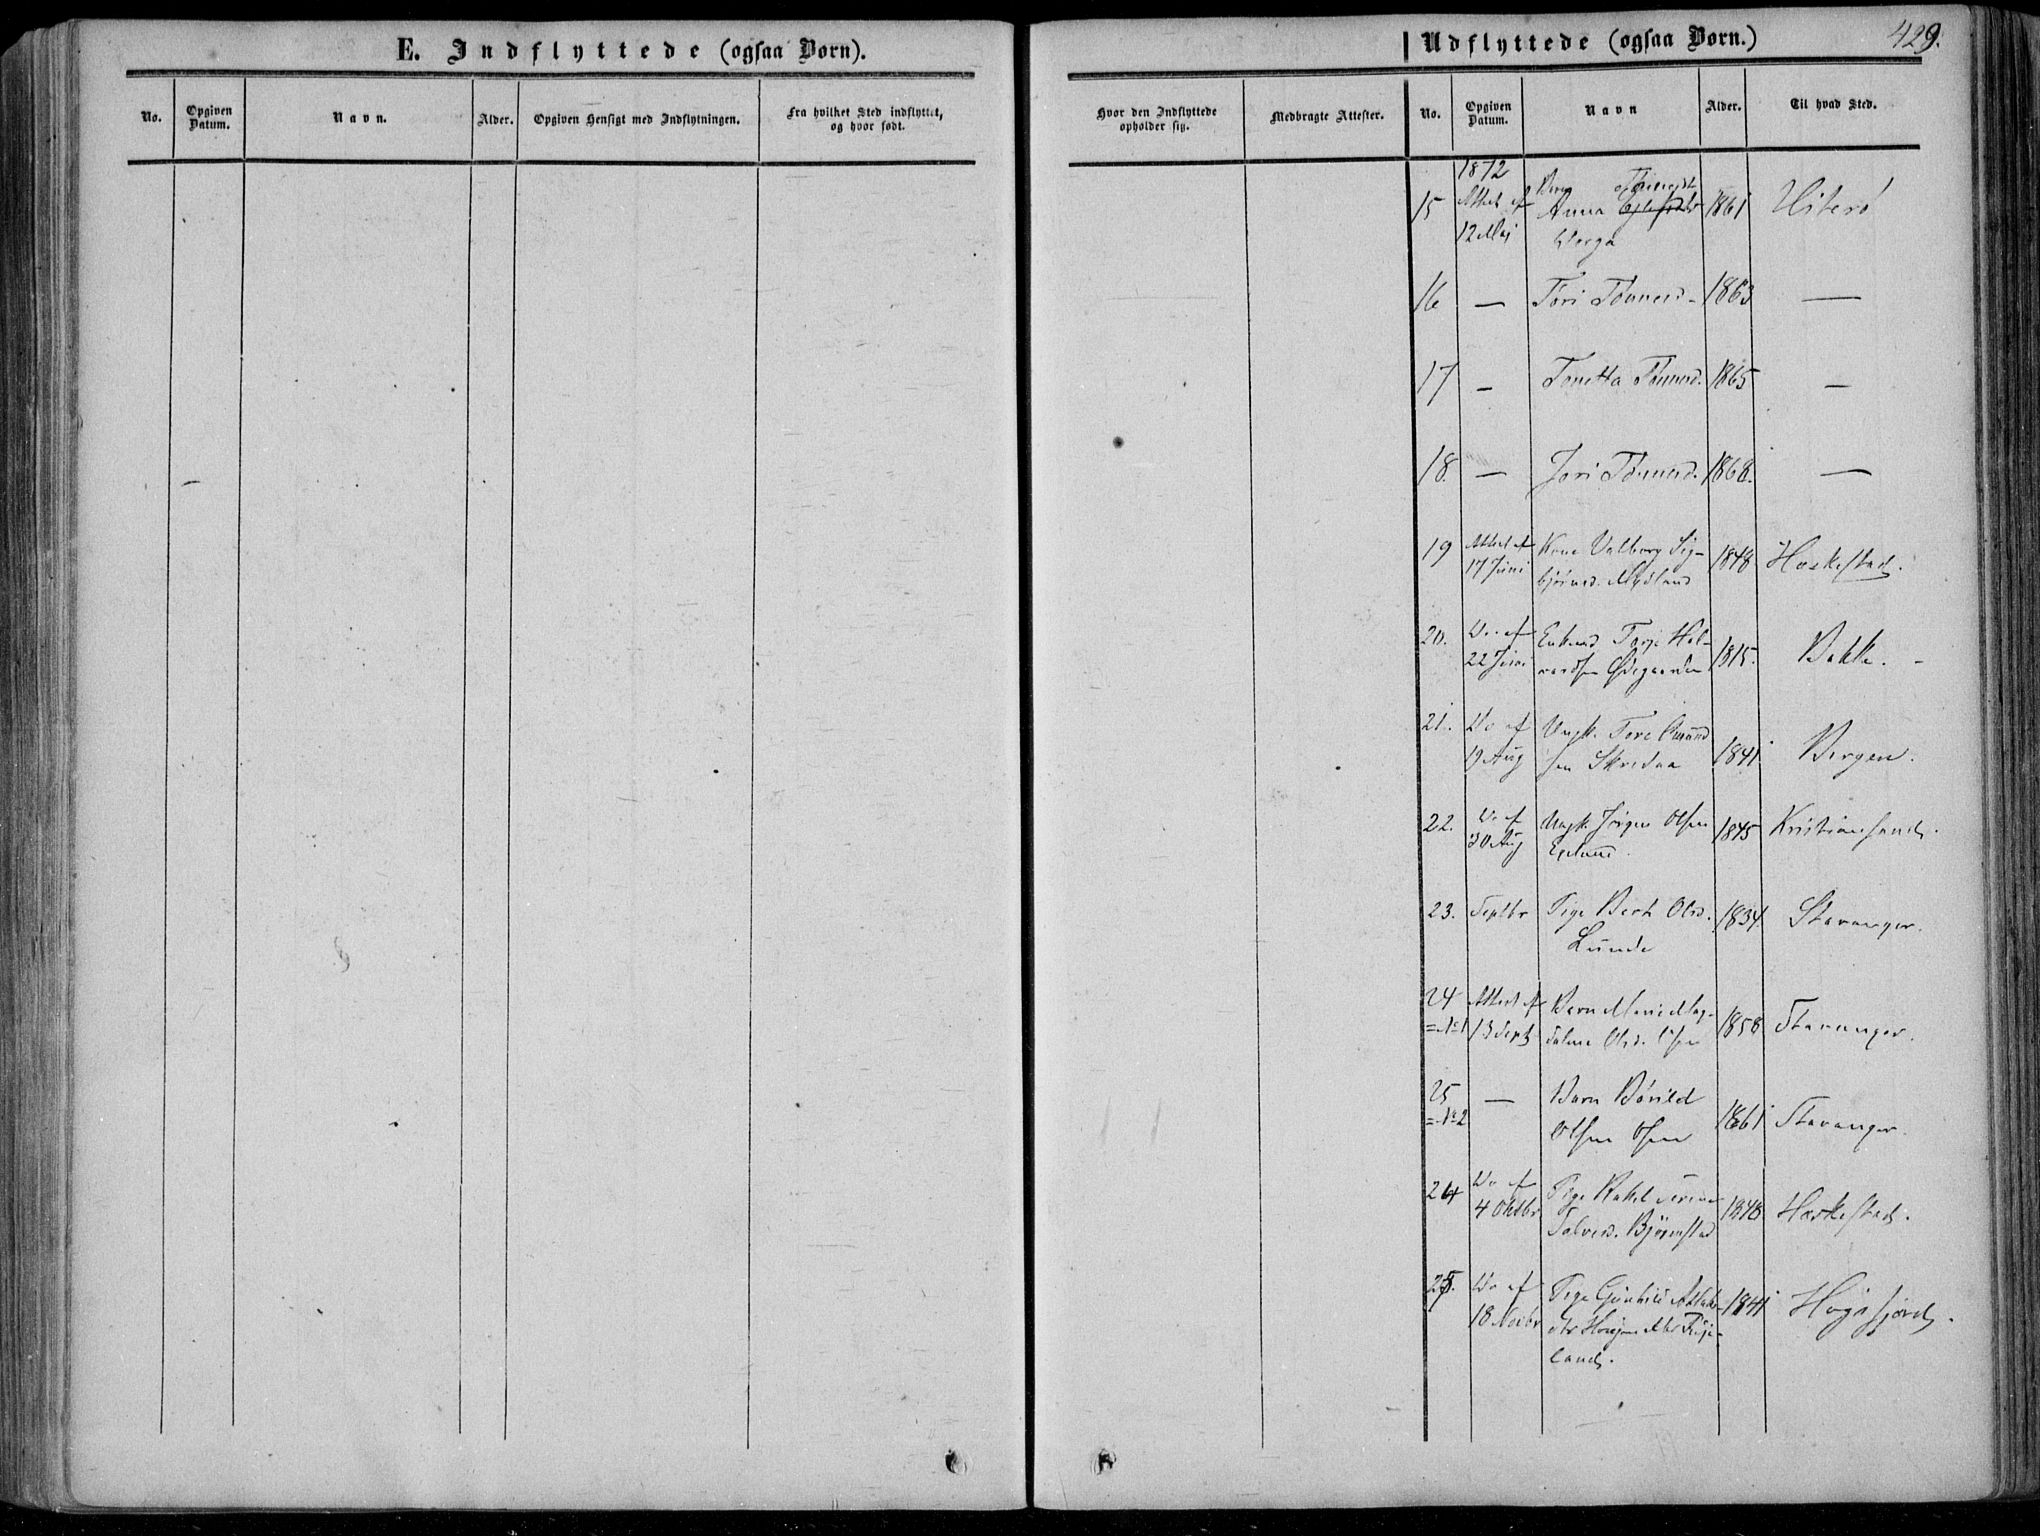 E. Indflyttede (ogsaa Børn).
No.
Opgiven
Datum.
Navn.
Alder.
Opgiven Hensigt med Indflytningen.
Fra hvilket Sted indflyttet,
og hvor født.
Udflyttede (ogsaa Børn.)
429.
Hvor den Indflyttede
opholder sig.
Medbragte Attester.
No.
Opgiven
Datum.
Navn
Alder.
Til hvad Sted.
1872
15 Attest af Anna 1861 Hiterø
12 Maj
16 — Tori Tønnesd. 1863 —
17 — Tonetta Tønnesd. 1865 —
18. — Jori Tønnesd. 1868. —
19 Attest af Kone Valborg Sig- 1848 Heskestad.
17 Juni bjørnsd. Mydland
20. Do af Enkemd Terje Hal- 1815. Bakke.
22 Juni vardsen Ødegaarden
21. Do af Ungk. Tore Omund 1841 Bergen.
19 Aug sen Skredaa
22. Do af Ungk. Jørgen Olsen 1845 Kristiansand.
30 Aug Egeland.
23. Septbr Pige Berte Olsd. 1834 Stavanger.
Lunde
24 Attest af Barn Marie Mag- 1858 Stavanger.
=No 1 13 Sept dalene Olsd. Osen
25 — Barn Bövild 1861 Stavanger.
=No 2 Olsen Osen
24 Do af Pige Rakel Serine 1848 Heskestad.
4 Oktbr Salvesd. Bjørnestad
25. Do af Pige Gunhild Atlaks- 1841 Høgsfjord.
18 Novbr
land.